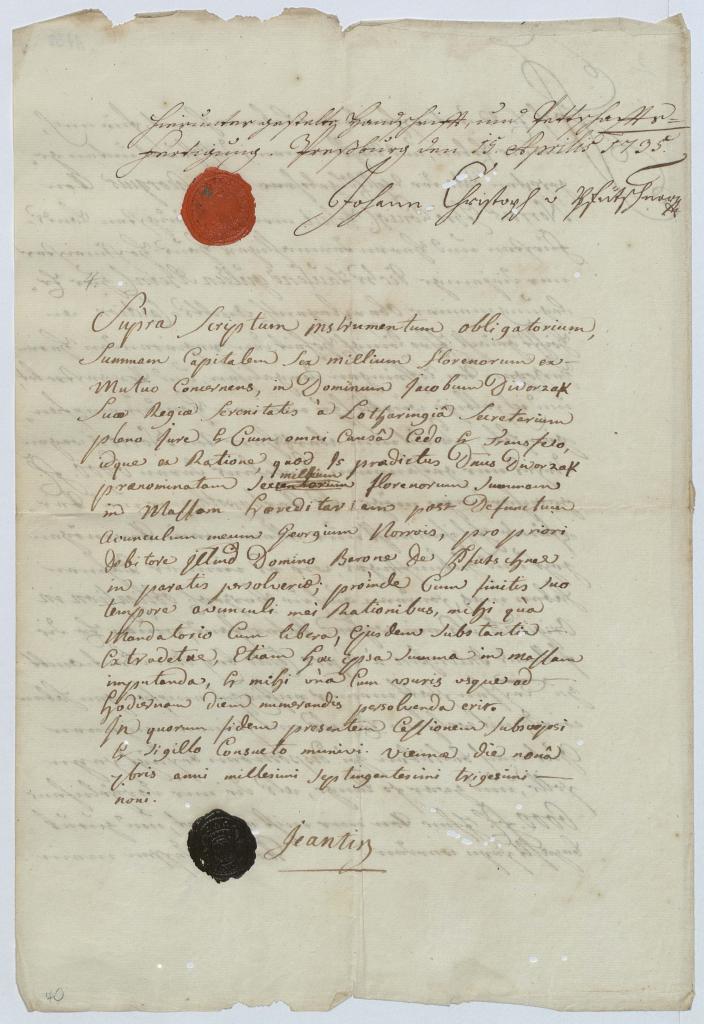 hierunter gestelte Handschrifft, und Pettschaffts-
Fertigung. Preßburg den 15. Aprilis 1735.
Johann Christoph v Pfütschner
4.
Supra Scriptum instrumentum obligatorium,
Summam Capitalem Sex millium florenorum ex
Mutuo Concernens, in Dominum Jacobum Diworzak
Suæ Regiæ Serenitatis à Lotharingiâ Secretarium
pleno Jure & Cum omni Causâ Cedo & Transfero,
idque ea Ratione, quod Is prædictus Dnus Diworzak
millium
prænominatam Sexcentorum florenorum Summam
in Massam hæreditariam post Defunctum
Avunculum meum Georgium Norrois, pro priori
debitore Domino Barone de Pfutschner
in paratis persolverit; proinde Cum finitis suo
tempore avunculi mei Rationibus, mihi quà
Mandatorio Cum libera, Ejusdem Substantia
Extradetur, Etiam hæc ipsa Summa in Massam
imputanda, & mihi unà Cum usuris usque ad
hodiernam diem numerandis persolvenda erit.
In quorum fidem præsentem Cessionem subscripsi
& Sigillo Consueto munivi. Viennæ die nonâ
7bris anni millesimi septingentesimi trigesimi
noni.
Jeantin
40